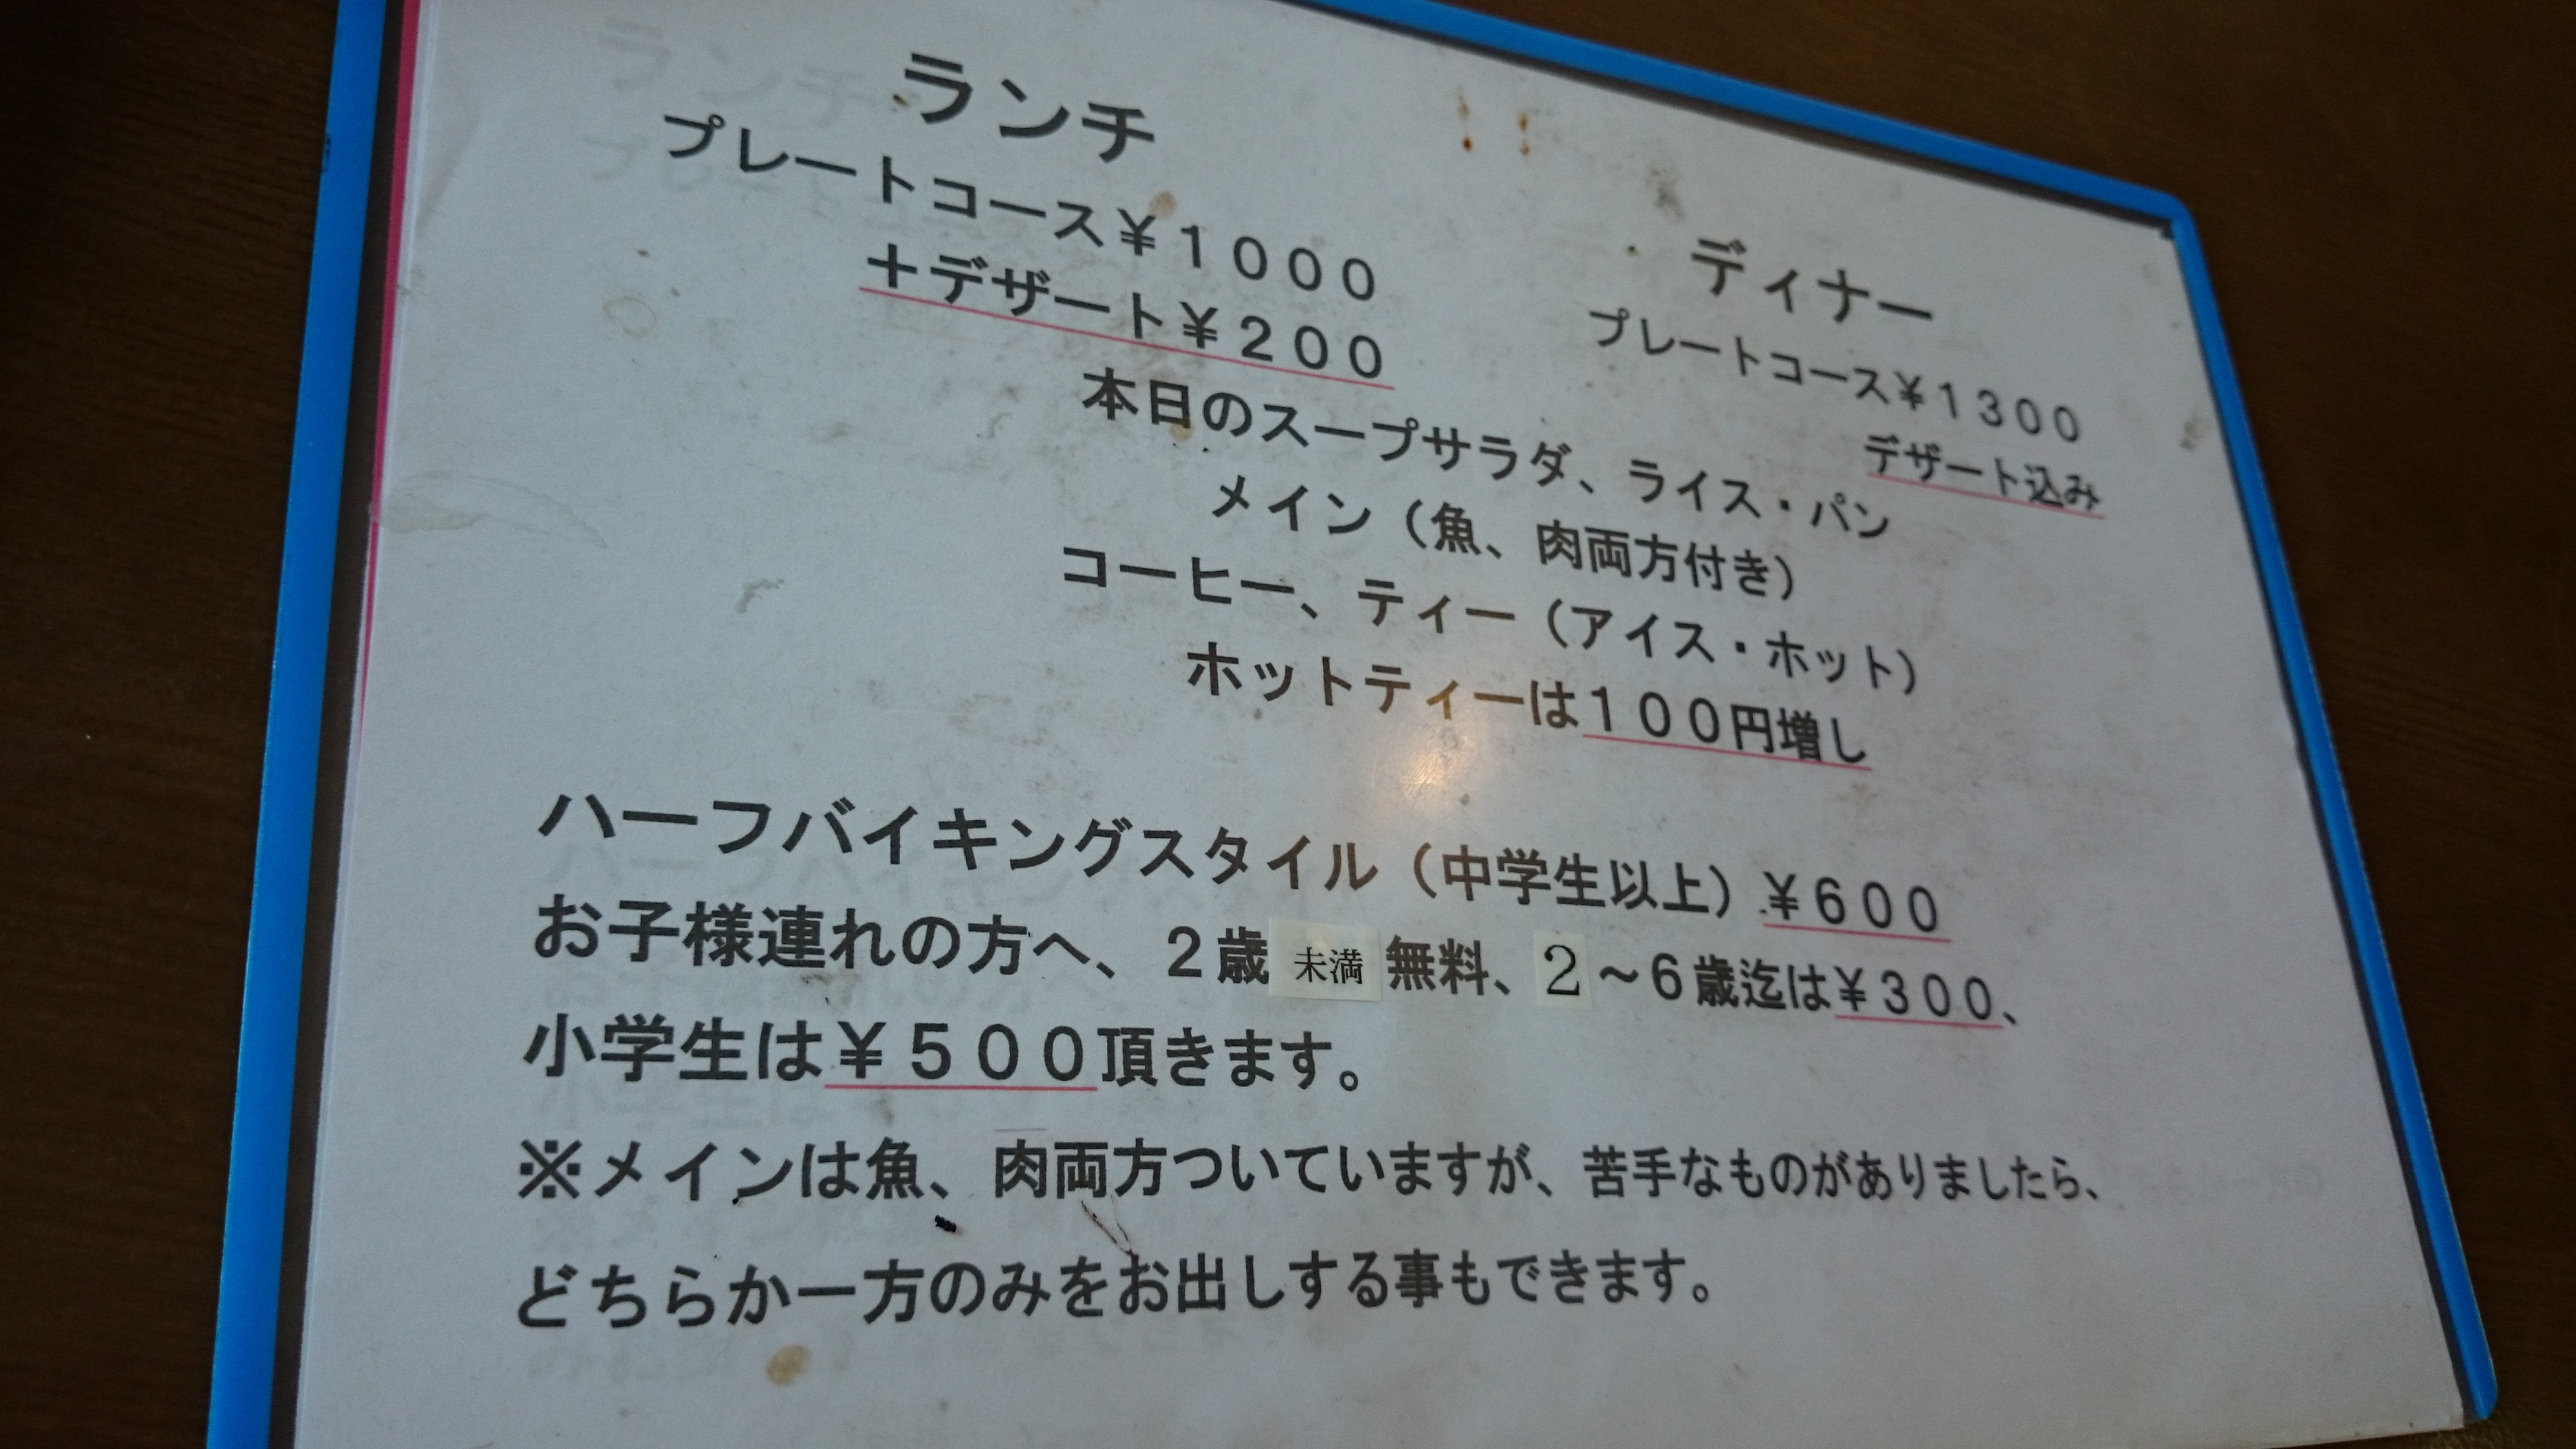 ランチ
プレートコース¥1000
+デザート¥200
ディナー
プレートコース¥1300
デザート込み
本日のスープサラダ、ライス・パン
メイン（魚、肉両方付き）
コーヒー、ティー（アイス・ホット）
ホットティーは100円増し
ハーフバイキングスタイル（中学生以上）¥600
お子様連れの方へ、2歳未満無料、2～6歳迄は¥300、
小学生は¥500頂きます。
※メインは魚、肉両方ついていますが、苦手なものがありましたら、
どちらか一方のみをお出しする事もできます。